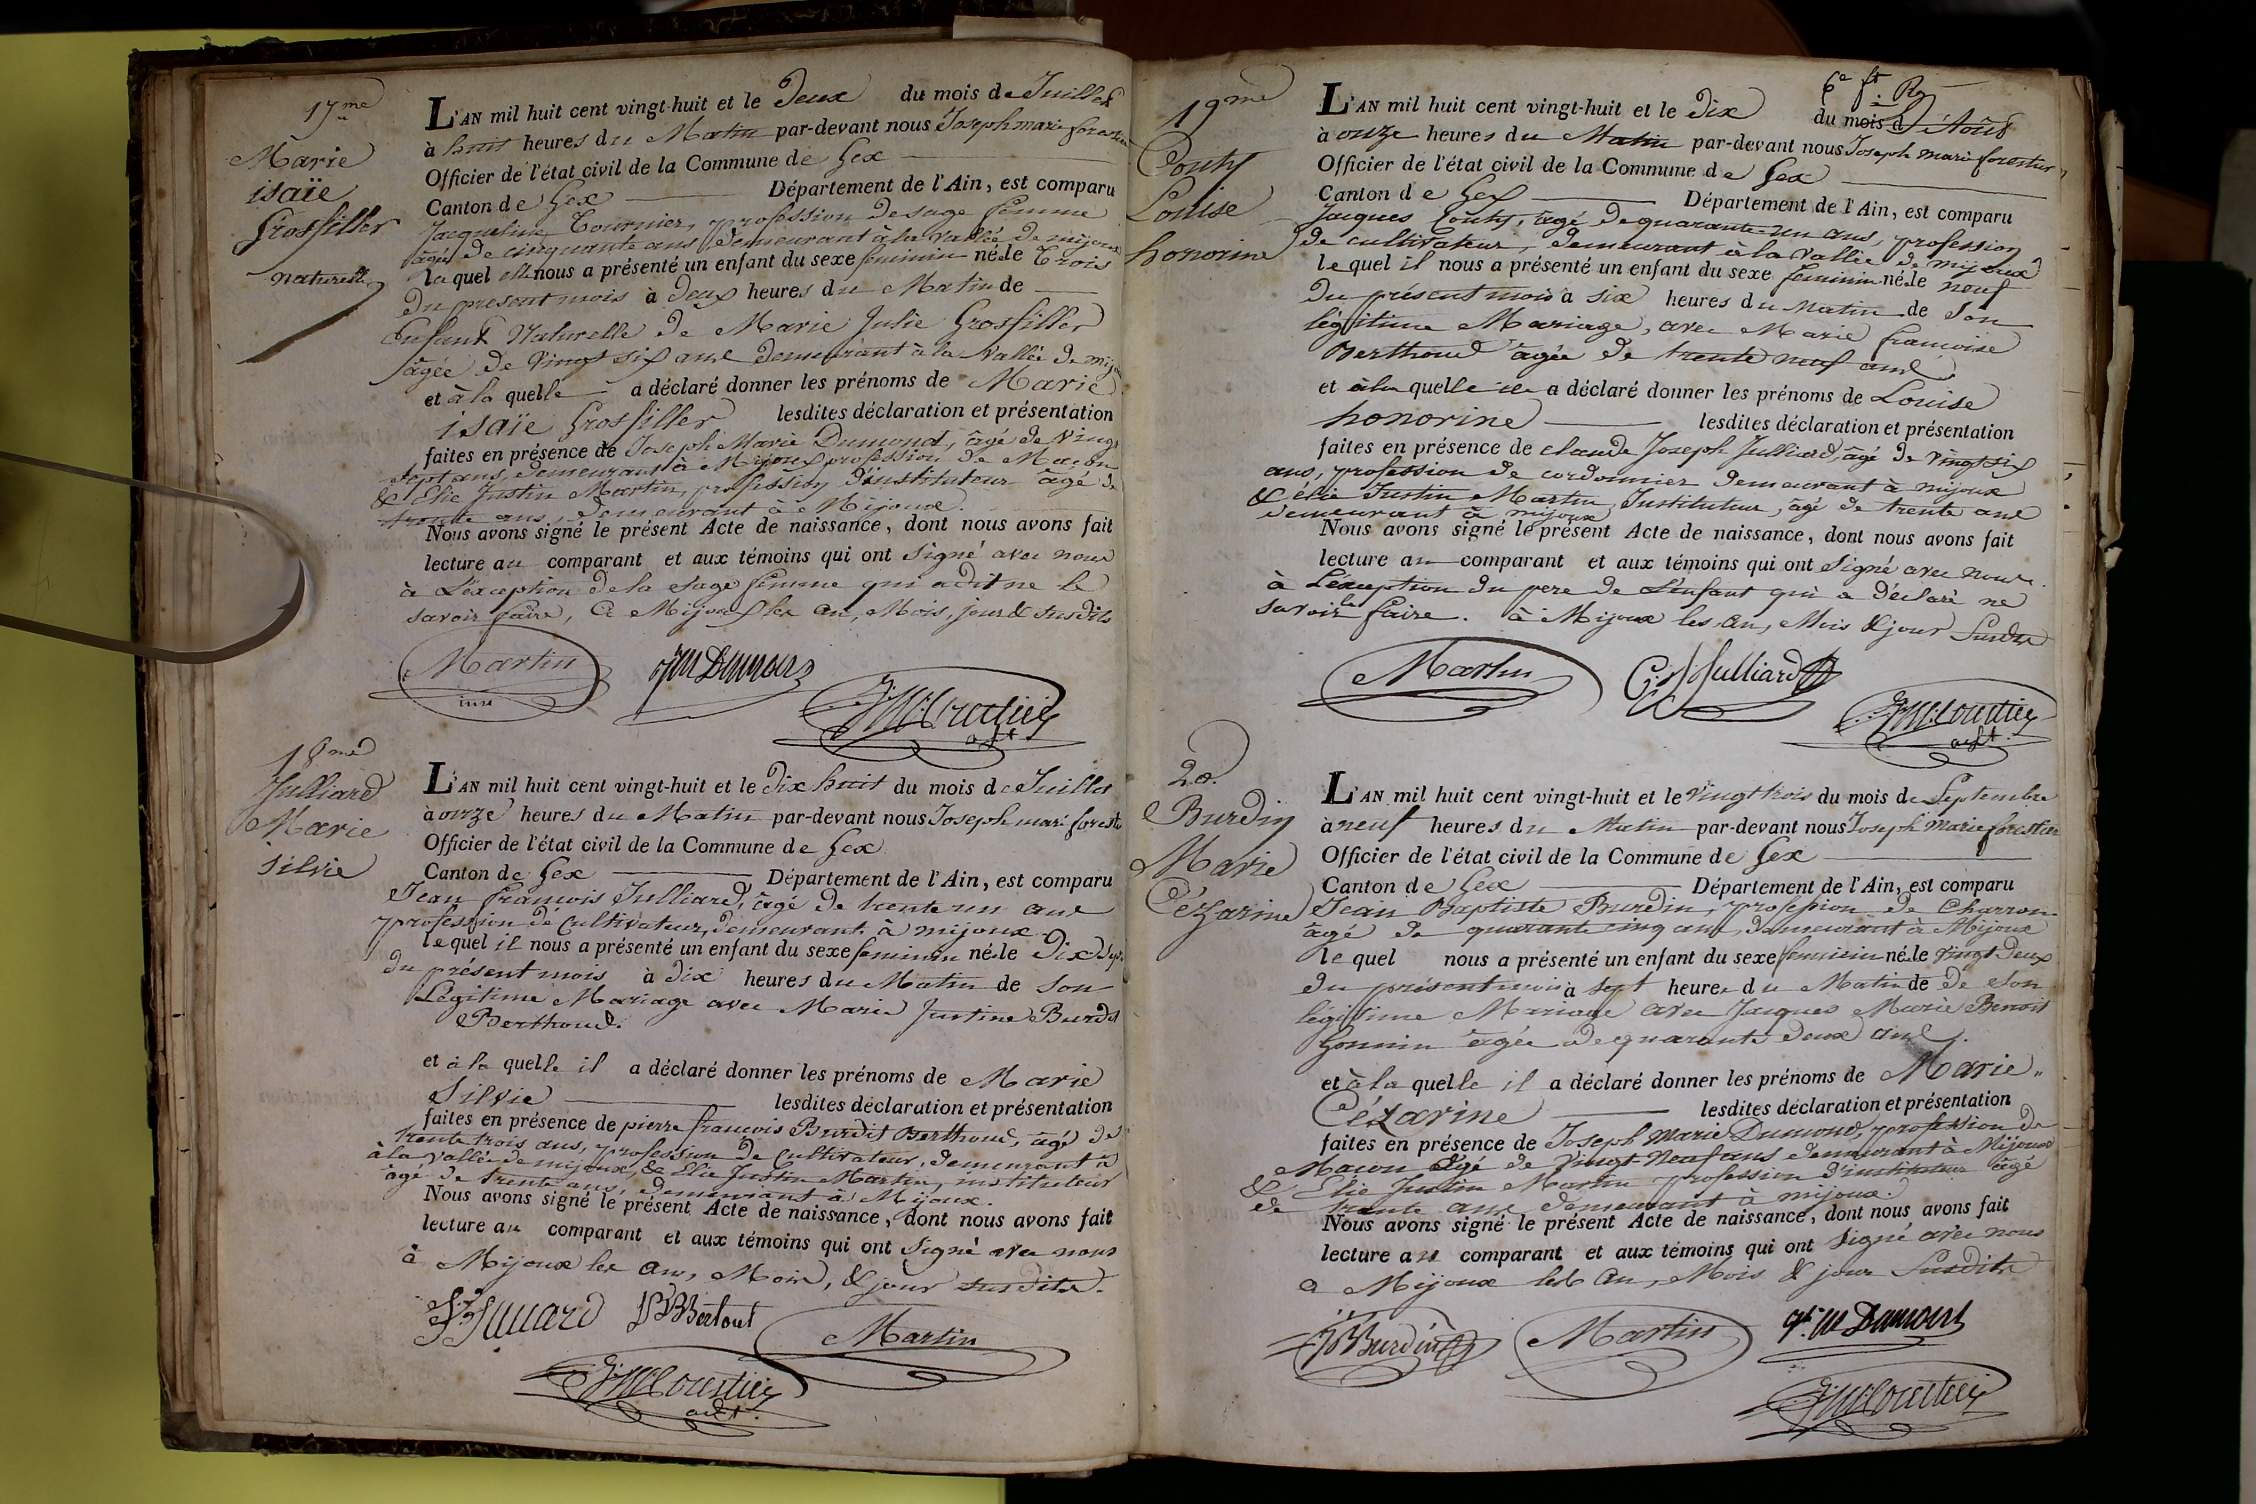 17me
Marie
isaïe
Grosfiller
naturelle
L'AN mil huit cent vingt-huit et le Deux du mois de Juillet
à huit heures du Matin par-devant nous Joseph marie forestier
Officier de l'état civil de la Commune de Gex
Canton de Gex Département de l'Ain, est comparu
Jacqueline Tournier, profession de sage femme
âgée de cinquante ans, demeurant à la vallée de mijoux
laquel elle nous a présenté un enfant du sexe feminin né le Trois
du present mois à Deux heures du Matin de
Enfant Naturelle de Marie Julie Grosfiller
âgée de vingt six ans demeurant à la vallée de mijoux
et à la quelle a déclaré donner les prénoms de Marie
isaïe Grosfiller lesdites déclaration et présentation
faites en présence de Joseph Marie Dumond, âgé de vingt
sept ans, demeurant à Mijoux profession de Maçon
& Elie Justin Martin, profession d'instituteur âgé de
trente ans, demeurant à Mijoux.
Nous avons signé le présent Acte de naissance, dont nous avons fait
lecture au comparant et aux témoins qui ont signé avec nous
à L'éxception de la sage femme qui a dit ne le
savoir faire, à Mijoux les an, Mois, jour & susdits
Martin
JM Dumond
18me
Julliard
Marie
silvie
L'AN mil huit cent vingt-huit et le Dix huit du mois de Juillet
à onze heures du Matin par-devant nous Joseph marie foresti
Officier de l'état civil de la Commune de Gex
Canton de Gex Département de l'Ain, est comparu
Jean françois Julliard, âgé de trente un ans
profession de Cultivateur, demeurant à mijoux
lequel il nous a présenté un enfant du sexe feminin né le Dix Sept
du présent mois à dix heures du Matin de son
Légitime Mariage avec Marie Justine Burdit
Berthoud.
et à la quelle il a déclaré donner les prénoms de Marie
Silvie lesdites déclaration et présentation
faites en présence de pierre françois Burdit Berthoud, âgé de
trente trois ans, profession de Cultivateur, demeurant à
à la vallée de mijoux, & Elie Justin Martin, instituteur
âgé de trente ans, demeurant à Mijoux.
Nous avons signé le présent Acte de naissance, dont nous avons fait
lecture au comparant et aux témoins qui ont signé avec nous
à Mijoux les an, Mois, & jour susdits.
Martin
19me
Louise
honorine
L'AN mil huit cent vingt-huit et le Dix du mois d'Août
à onze heures du Matin par-devant nous Joseph marie forestier
Officier de l'état civil de la Commune de Gex
Canton de Gex Département de l'Ain, est comparu
Jacques âgé de quarante-un ans, profession
de cultivateur, demeurant à la vallée de mijoux
lequel il nous a présenté un enfant du sexe feminin né le neuf
du présent mois à six heures du matin de son
légitime Mariage, avec Marie françoise
Berthoud âgée de trente neuf ans
et à la quelle il a déclaré donner les prénoms de Louise
honorine lesdites déclaration et présentation
faites en présence de claude Joseph Julliard, âgé de vingt six
ans, profession de cordonnier demeurant à mijoux
& élie Justin Martin, Instituteur, âgé de trente ans
demeurant à mijoux
Nous avons signé le présent Acte de naissance, dont nous avons fait
lecture au comparant et aux témoins qui ont signé avec nous.
à L'exception du pere de L'enfant qui a déclaré ne
savoir le faire. à Mijoux les an, Mois & jour Susdits
Martin
Julliard
20.
Burdin
Marie
Cézarine
L'AN mil huit cent vingt-huit et le vingt trois du mois de Septembre
à neuf heures du Matin par-devant nous Joseph Marie forestier
Officier de l'état civil de la Commune de Gex
Canton de Gex Département de l'Ain, est comparu
Jean Baptiste Burdin, profession de Charron
âgé de quarante cinq ans, demeurant à Mijoux
lequel nous a présenté un enfant du sexe feminin né le vingt Deux
du présent mois à sept heures du Matin de de son
légitime Mariage avec Jacques Marie Benoit
Gonnin âgée de quarante deux ans.
et à la quelle il a déclaré donner les prénoms de Marie
Cézarine lesdites déclaration et présentation
faites en présence de Joseph Marie Dumond, profession de
Macon âgé de vingt Neuf ans demeurant à Mijoux
& Elie Justin Martin profession d'instituteur âgé
de trente ans demeurant à mijoux.
Nous avons signé le présent Acte de naissance, dont nous avons fait
lecture au comparant et aux témoins qui ont signé avec nous
a Mijoux les an, Mois & jour Susdits
JB Burdin
Martin